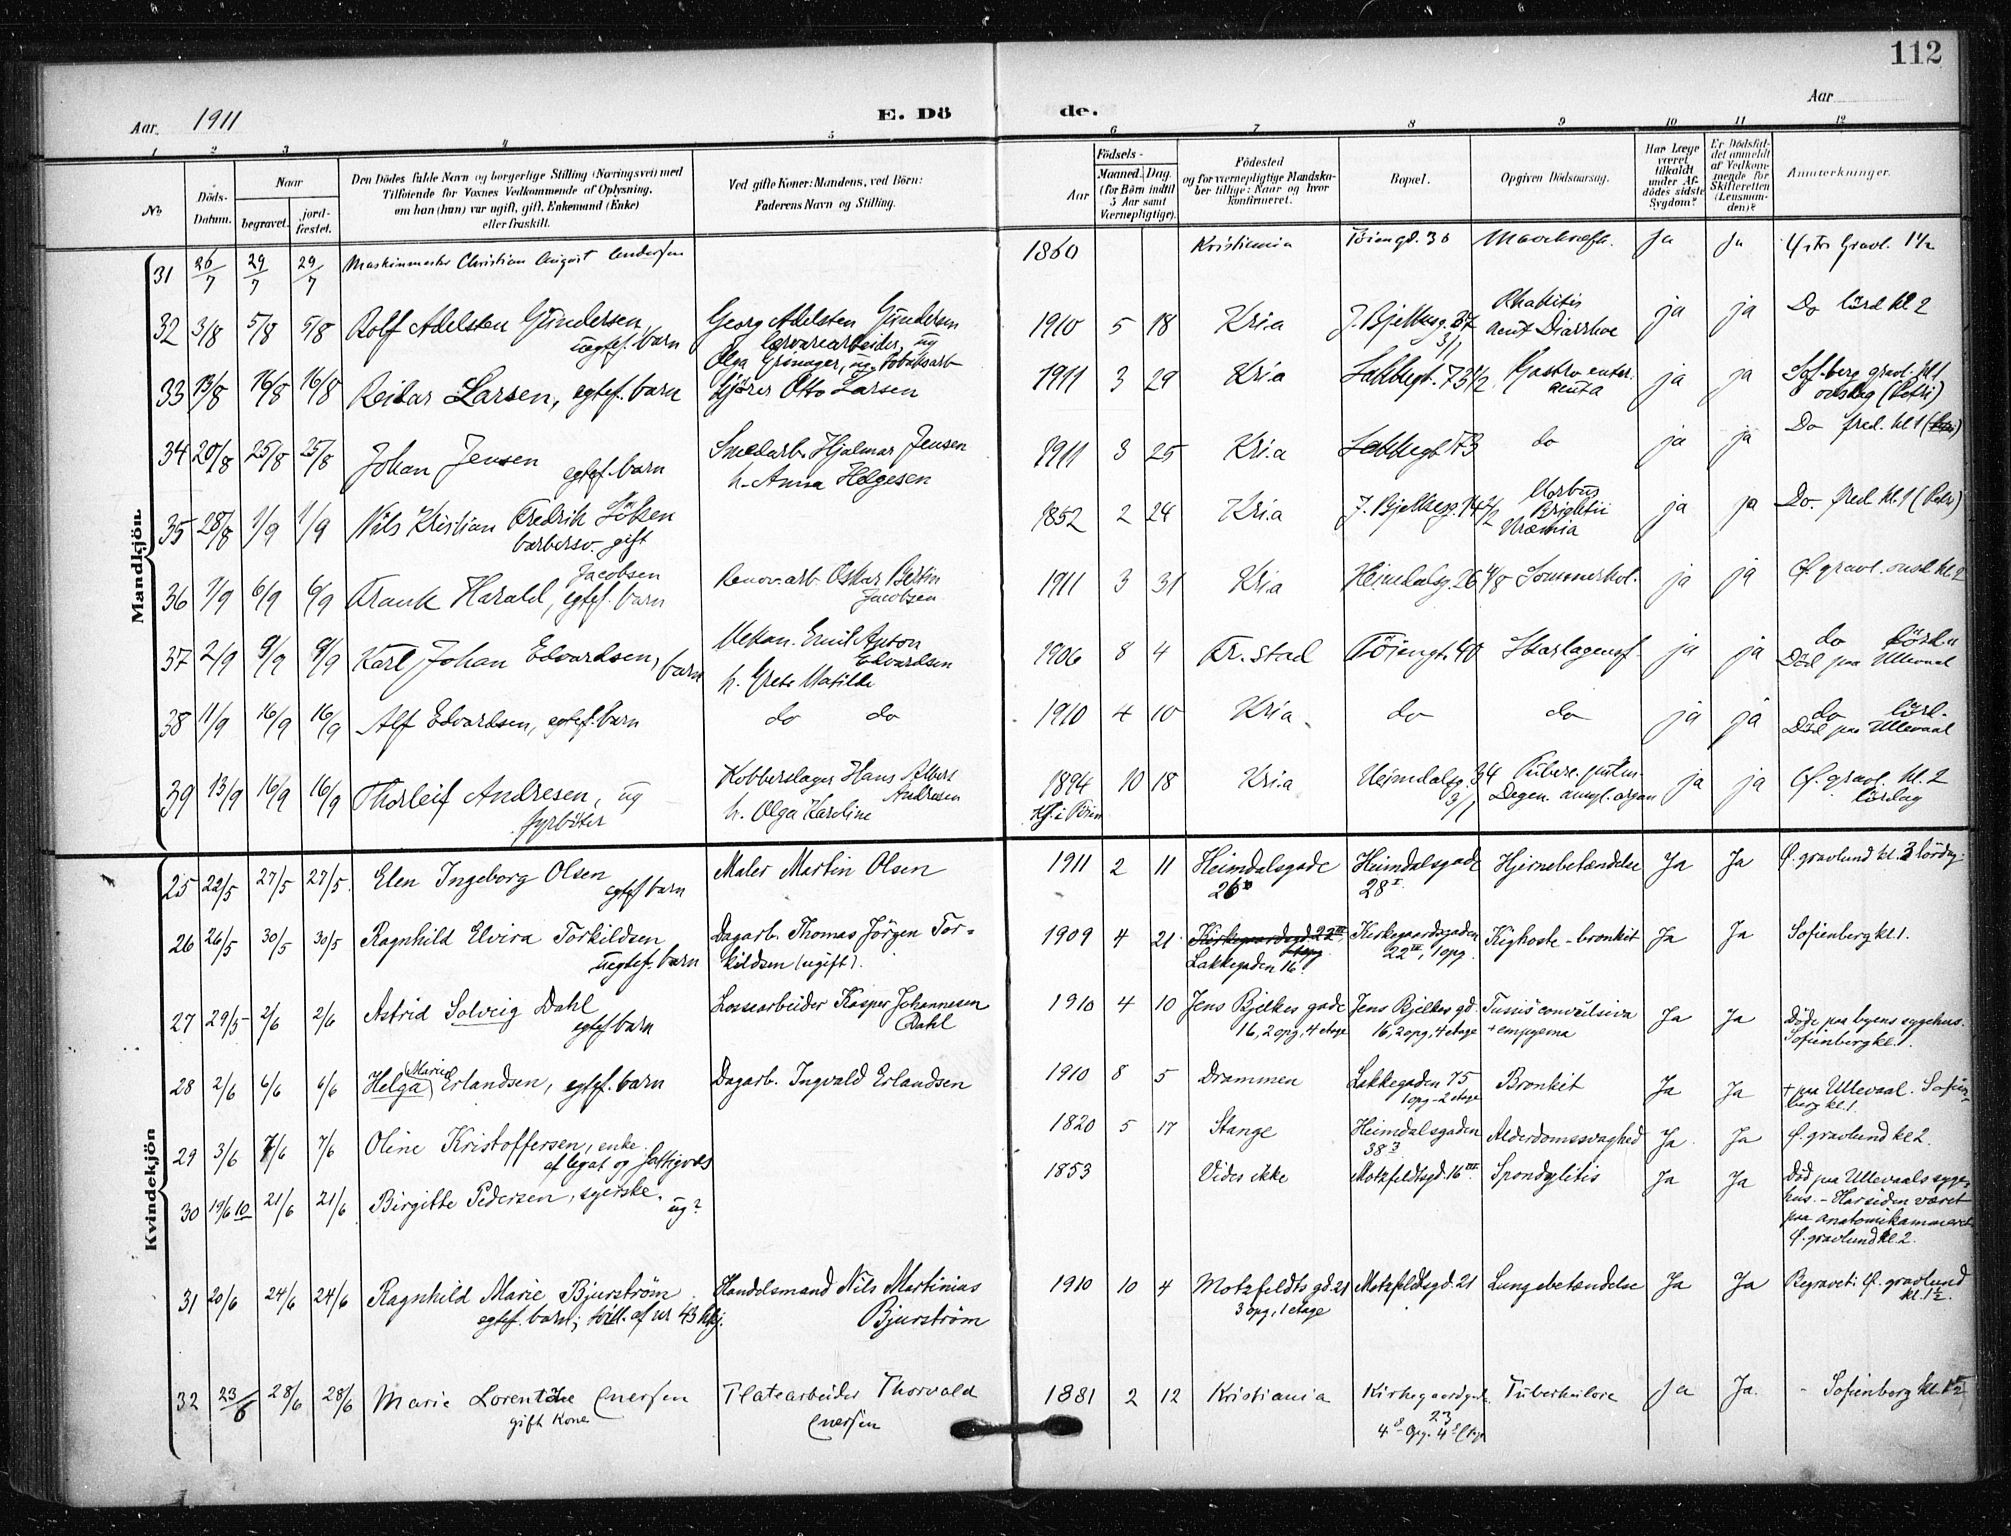 112
Aar. 1911 E. Döde. Aar
1 2 3 4 5 6 7 8 9 10 11 12
No. Döds-Datum. Naar begravet. jord-fæstet. Den Dödes fulde Navn og borgerlige Stilling (Næringsvei) med Tilföiende for Voxnes Vedkommende af Oplysning, om han (hun) var ugift, gift, Enkemand (Enke) eller fraskilt. Ved gifte Koner: Mandens, ved Börn: Faderens Navn og Stilling. Födsels- Aar Maaned. Dag. (for Börn indtil 5 Aar samt Værnepligtige). Födested og for værnepligtige Mandskaber tillige: Naar og hvor konfirmeret. Bopæl. Opgiven Dödsaarsag. Har Læge været tilkaldt under Afdödes sidste Sygdom? Er Dödsfaldet anmeldt af Vedkommende for Skifteretten (Lensmanden)? Anmærkninger.
Mandkjön.
31 26/7 29/7 29/7 Maskinmester Christian August Andersen 1860 Kristiania Töiengd. 30 Mavekræft. Ja Ja Gravl. 1 1/2
32 3/8 5/8 5/8 Rolf Adelsten Gundersen uegtef. barn Georg Adelsten Gundersen ug Olga Grönager, ug. Tobaksarb 1910 5 18 Kria J. Bjelkesg. 37 3/1 Rhakitis acut Diarrhoe ja ja Do lörd kl 2
33 13/8 16/8 16/8 Reidar Larsen, egtef. barn Kjörer Otto Larsen 1911 3 29 Kria Lakkegt. 73 1/2 Gastro enter. acuta ja ja Sof. berg gravl. kl. 1 onsdag (Petri)
34 20/8 25/8 25/8 Johan Jensen egtef. barn Smedarb. Hjalmar Jensen h. Anna Helgesen 1911 3 25 Kria Lakkegt 73 do ja ja Do fred. kl 1
35 28/8 1/9 1/9 Nils Kristian Fredrik Löken barbersv. gift 1852 2 24 Kria J. Bjelkesg. 74 1/2 Morbus Brightii Uræmia ja ja Do. fred. kl. 1 (Petri)
36 1/9 6/9 6/9 Frank Harald Jacobsen, egtef. barn Renov. arb. Oskar Bertin Jacobsen 1911 3 31 Kria Heimdalsg. 26 4/8 Sommerkol. ja ja Ø. gravl. onsd. kl. 2
37 2/9 9/9 9/9 Karl Johan Edvardsen, barn Mekan. Emil Anton Edvardsen h. Grete Matilde 1906 8 4 Fr. stad Töiengt. 40 Skarlagensf. ja ja do lörd. Död paa Ullevaal
38 11/9 16/9 16/9 Alf Edvardsen, egtef. barn do do 1910 4 10 Kria do do ja ja do lörd. Död paa Ullevaal
39 13/9 16/9 16/9 Thorleif Andresen, ug fyrböter Kobberslager Hans Albert Andresen h. Olga Karoline 1894 10 18 Kria Heimdalsg. 34 3/1 Tuberc. pulm. Degen. amyl. organ ja ja Ø. gravl. kl. 2 lördag
Kvindekjön
25 22/5 27/5 27/5. Elen Ingeborg Olsen egtef. barn Maler Martin Olsen 1911 2 11 Heimdalsgade 26 Heimdalsgade 28 I Hjernebetændelse Ja Ja Ø. gravlund kl. 3 lördag
26 26/5 30/5 30/5 Ragnhild Elvira Torkildsen uegtef. barn Dagarb. Thomas Jörgen Torkildsen (ugift). 1909 4 21 Kirkegaardsgd. 22 III Lakkegaden 16. Kirkegaardsgaden 22 III, 1 opg. Kighoste - bronkit Ja Ja Sofienberg kl. 1.
27 29/5 2/6 2/6 Astrid Solveig Dahl egtef. barn Lossearbeider Kasper Johannesen Dahl 1910 4 10 Jens Bjelkes gade 16, 2 opg, 4 etage Jens Bjelkes gd. 16, 2 opg, 4 etage Tussis convulsiva + empyema Ja Ja Döde paa byens sygehus. Sofienberg kl. 1.
28 2/6 6/6 6/6 Helga Marie Erlandsen, egtef. barn Dagarb. Ingvald Erlandsen 1910 8 5 Drammen Lakkegaden 75 1 opg - 2 etage Bronkit Ja Ja + paa Ullevaal. Sofienberg kl. 1.
29 3/6 7/6 7/6 Oline Kristoffersen, enke. af legat og fattigvæs 1820 5 17 Stange Heimdalsgaden 38 3 Alderdomssvaghed Ja. Ja Ø. gravlund kl 2.
30 19/6 10 21/6 21/6 Birgitte Pedersen, syerske. ug? 1853 Vides ikke Motzfeldtsgd. 16 III. Spondylitis Ja Ja Död paa Ullevaals sygehus. - Har siden været paa anatomikammeret Ø. gravlund kl 2.
31 20/6 24/6 24/6 Ragnhild Marie Bjurström egtef. barn; tvill. af nr 43 Mkj. Handelsmand Nils Martinius Bjurström 1910 10 4 Motzfeldts gd. 21 3 opg, 1 etage Motzfeldtsgd. 21 Lungebetændelse Ja Ja Begravet: Ø. gravlund kl. 1 1/2.
32 23/6 28/6 28/6 Marie Lorentze Iversen gift Kone Platearbeider Thorvald Iversen 1881 2 12 Kristiania Kirkegaardgd. 23 4 Opg. 4 Etg. Tuberkulose Ja Ja. Sofienberg kl. 1 1/2